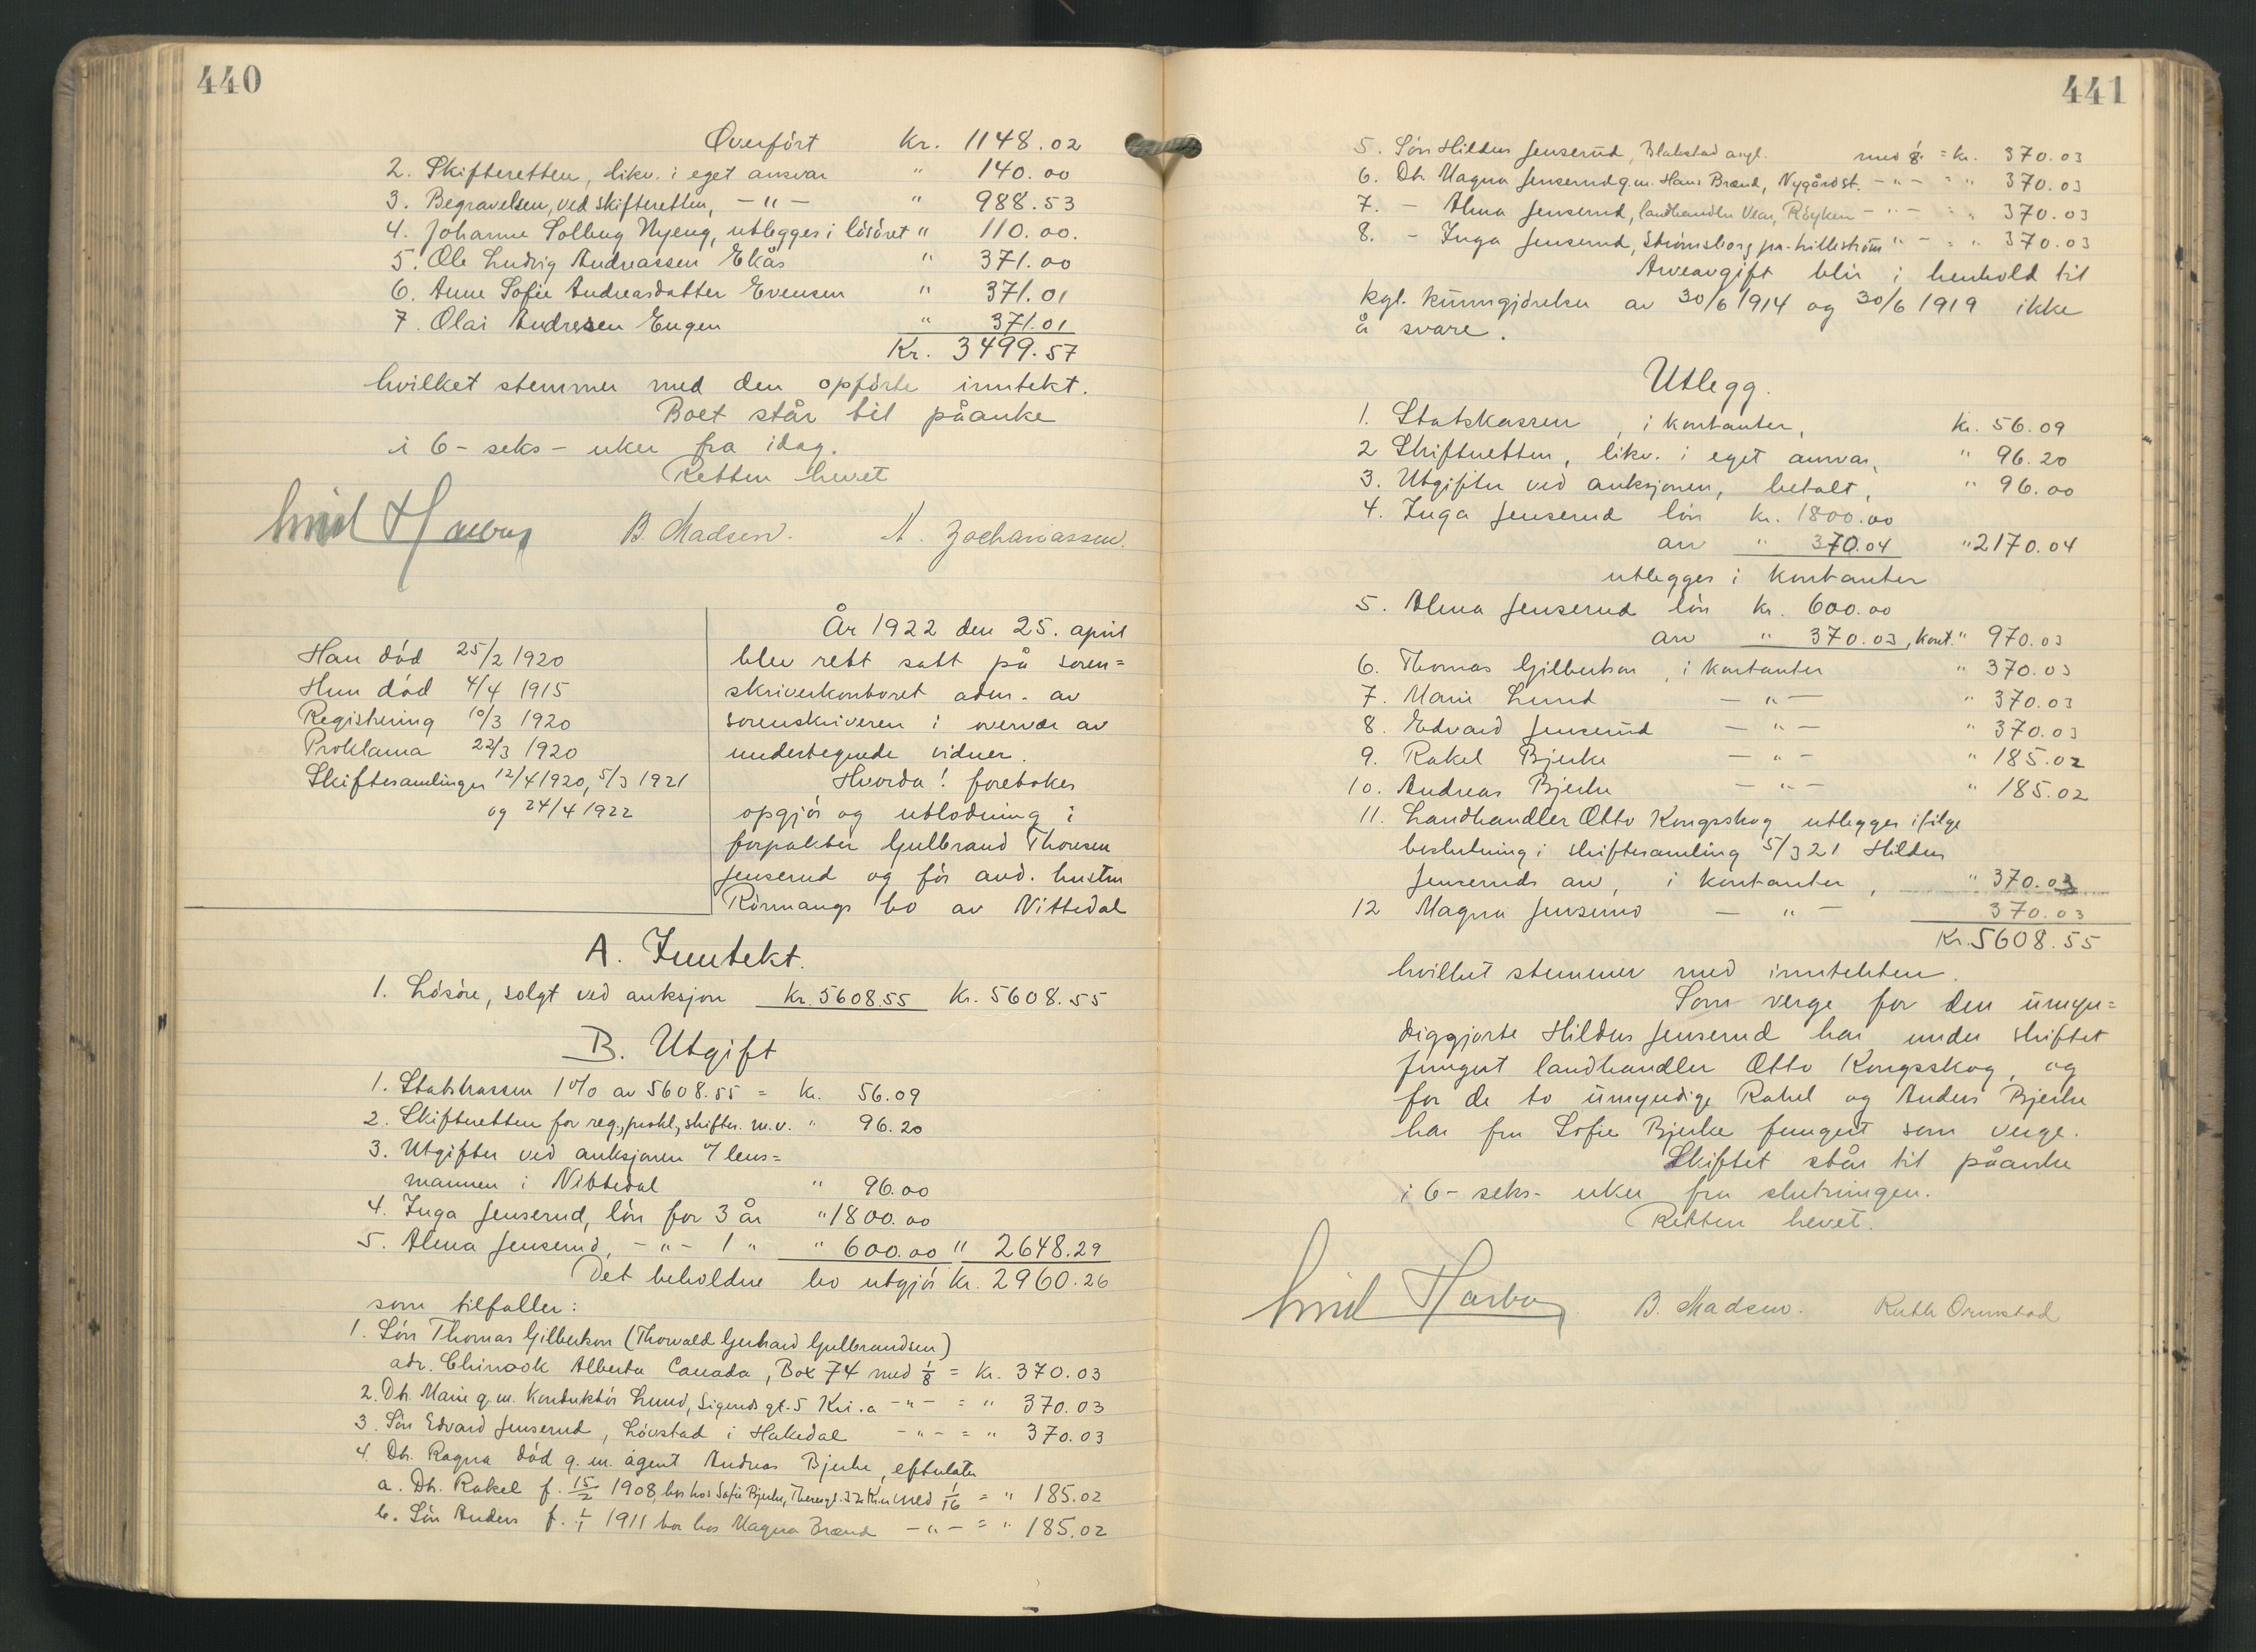 440
Overført Kr. 1148.02
2. Skifteretten, likv. i eget ansvar " 140.00
3. Begravelsen, ved skifteretten, - " - " 988.53
4. Johanne Solberg Nyeng, utlegges i lösöret " 110.00.
5. Ole Ludvig Andreassen Ekås " 371.00
6. Anne Sofie Andreasdatter Evensen " 371.01
7. Olai Andresen Eugen " 371.01
Kr. 3499.57
hvilket stemmer med den opförte inntekt.
Boet står til påanke
i 6 - seks - uker fra idag.
Retten hevet
B. Madsen. A. Zachariassen.
År 1922 den 25. april
blev rett satt på soren=
skriverkontoret adm. av
sorenskriveren i overvær av
undertegnede vidner.
Hvorda! foretokes
opgjör og utlodning i
forpakter Gulbrand Thoresen
Jenserud og för avd. hustru
bo av Nittedal
Han död 25/2 1920
Hun död 4/4 1915
Registrering 10/3 1920
Proklama 22/3 1920
Skiftesamlinger 12/4 1920, 5/3 1921
og 24/4 1922
A. Inntekt.
1. Lösöre, solgt ved auksjon Kr. 5608.55 Kr. 5608.55
B. Utgift
1. Statskassen 1% av 5608.55 = Kr. 56.09
2. Skifteretten for reg., prokl., skiftes. m.v. " 96.20
3. Utgifter ved auksjonen v/ lens=
mannen i Nittedal " 96.00
4. Inga Jenserud, lön for 3 år " 1800.00
5. Alma Jenserud, - " - 1 " " 600.00 " 2648.29
Det beholdne bo utgjör Kr. 2960.26
som tilfaller:
1. Sön Thomas Gilbertson (Thorvald Gerhard Gulbrandsen)
adr. Chinook Alberta Canada, Box 74 med 1/8 = Kr. 370.03
2. Dtr. Marie g.m. Konduktör Lund, Sigurds gt. 5 Kri.a - " - = " 370.03
3. Sön Edvard Jenserud, Lövstad i Hakedal - " - = " 370.03
4. Dtr. Ragna död g.m. agent Andreas Bjerke, efterlater
a. Dtr. Rakel f. 15/2 1908, bor hos Sofie Bjerke, med 1/16 = " 185.02
b. Sön Anders f. 1/1 1911 bor hos Magna Brænd - " - = " 185.02
441
5. Sön Hildus Jenserud, Blakstad asyl. med 1/8 = kr. 370.03
6. Dtr. Magna Jenserud g.m. Hans Brænd, Nygård st. - " - = " 370.03
7. - Alma Jenserud, landhandler Vear, Röyken - " - = " 370.03
8. - Inga Jenserud, Strömsborg pr. Lilleström " - = " 370.03
Arveavgift blir i henhold til
kgl. kunngjörelser av 30/6 1914 og 30/6 1919 ikke
å svare.
Utlegg.
1. Statskassen, i kontanter, Kr. 56.09
2 Skifteretten, likv. i eget ansvar, " 96.20
3. Utgifter ved auksjonen, betalt, " 96.00
4. Inga Jenserud lön kr. 1800.00
arv " 370.04 " 2170.04
utlegges i kontanter
5. Alma Jenserud lön kr. 600.00
arv " 370.03, kont. " 970.03
6. Thomas Gilbertson, i kontanter " 370.03
7. Marie Lund - " - " 370.03
8. Edvard Jenserud - " - " 370.03
9. Rakel Bjerke - " - " 185.02
10. Andreas Bjerke - " - " 185.02
11. Landhandler Otto Kongsskog utlegges ifölge
beslutning i skiftesamling 5/3 21 Hildus
Jenseruds arv, i kontanter, " 370.03
12 Magna Jenserud - " - 370.03
Kr. 5608.55
hvilket stemmer med inntekten.
Som verge for den umyn=
diggjorte Hildus Jenserud har under skiftet
fungert landhandler Otto Kongsskog, og
for de to umyndige Rakel og Anders Bjerke
har fru Sofie Bjerke fungert som verge.
Skiftet står til påanke
i 6 - seks - uker fra slutningen.
Retten hevet.
B. Madsen. Ruth Ormstad